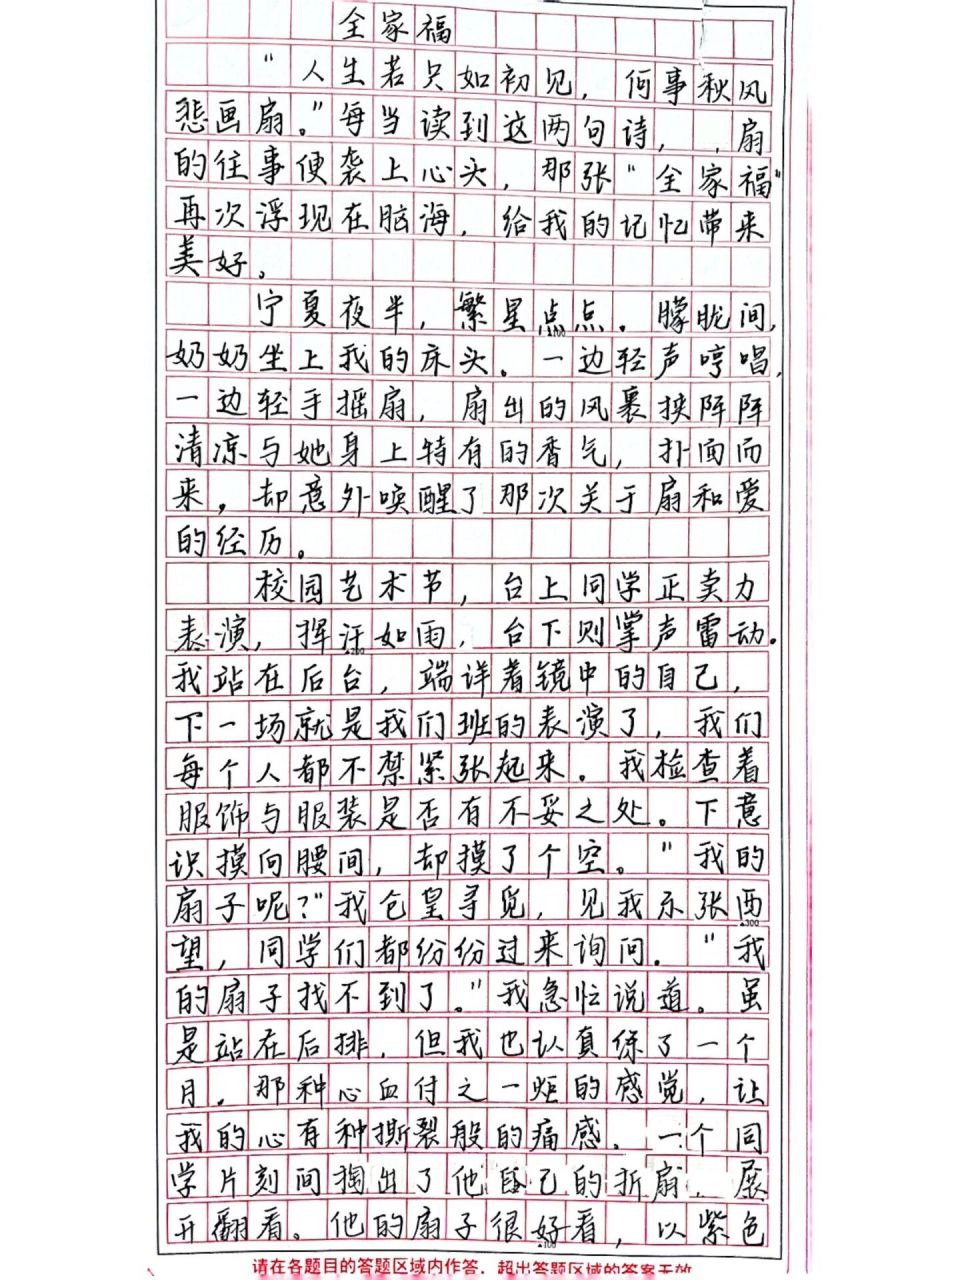 全家福
“人生若只如初见，何事秋风
悲画扇。”每当读到这两句诗，，扇
的往事便袭上心头，那张“全家福”
再次浮现在脑海，给我的记忆带来
美好。
宁夏夜半，繁星点点。朦胧间，
奶奶坐上我的床头。一边轻声哼唱，
一边轻手摇扇，扇出的风裹挟阵阵
清凉与她身上特有的香气，扑面而
来，却意外唤醒了那次关于扇和爱
的经历。
校园艺术节，台上同学正卖力
表演，挥汗如雨，台下则掌声雷动。
我站在后台，端详着镜中的自己，
下一场就是我们班的表演了，我们
每个人都不禁紧张起来。我检查着
服饰与服装是否有不妥之处。下意
识摸向腰间，却摸了个空。“我的
扇子呢？”我仓皇寻觅，见我东张西
望，同学们都纷纷过来询问。“我
的扇子找不到了。”我急忙说道。虽
是站在后排，但我也认真练了一个
月，那种心血付之一炬的感觉，让
我的心有种撕裂般的痛感。一个同
学片刻间掏出了他自己的折扇，展
开翻看。他的扇子很好看，以紫色
▲100
▲200
▲300
▲400
请在各题目的答题区域内作答，超出答题区域的答案无效